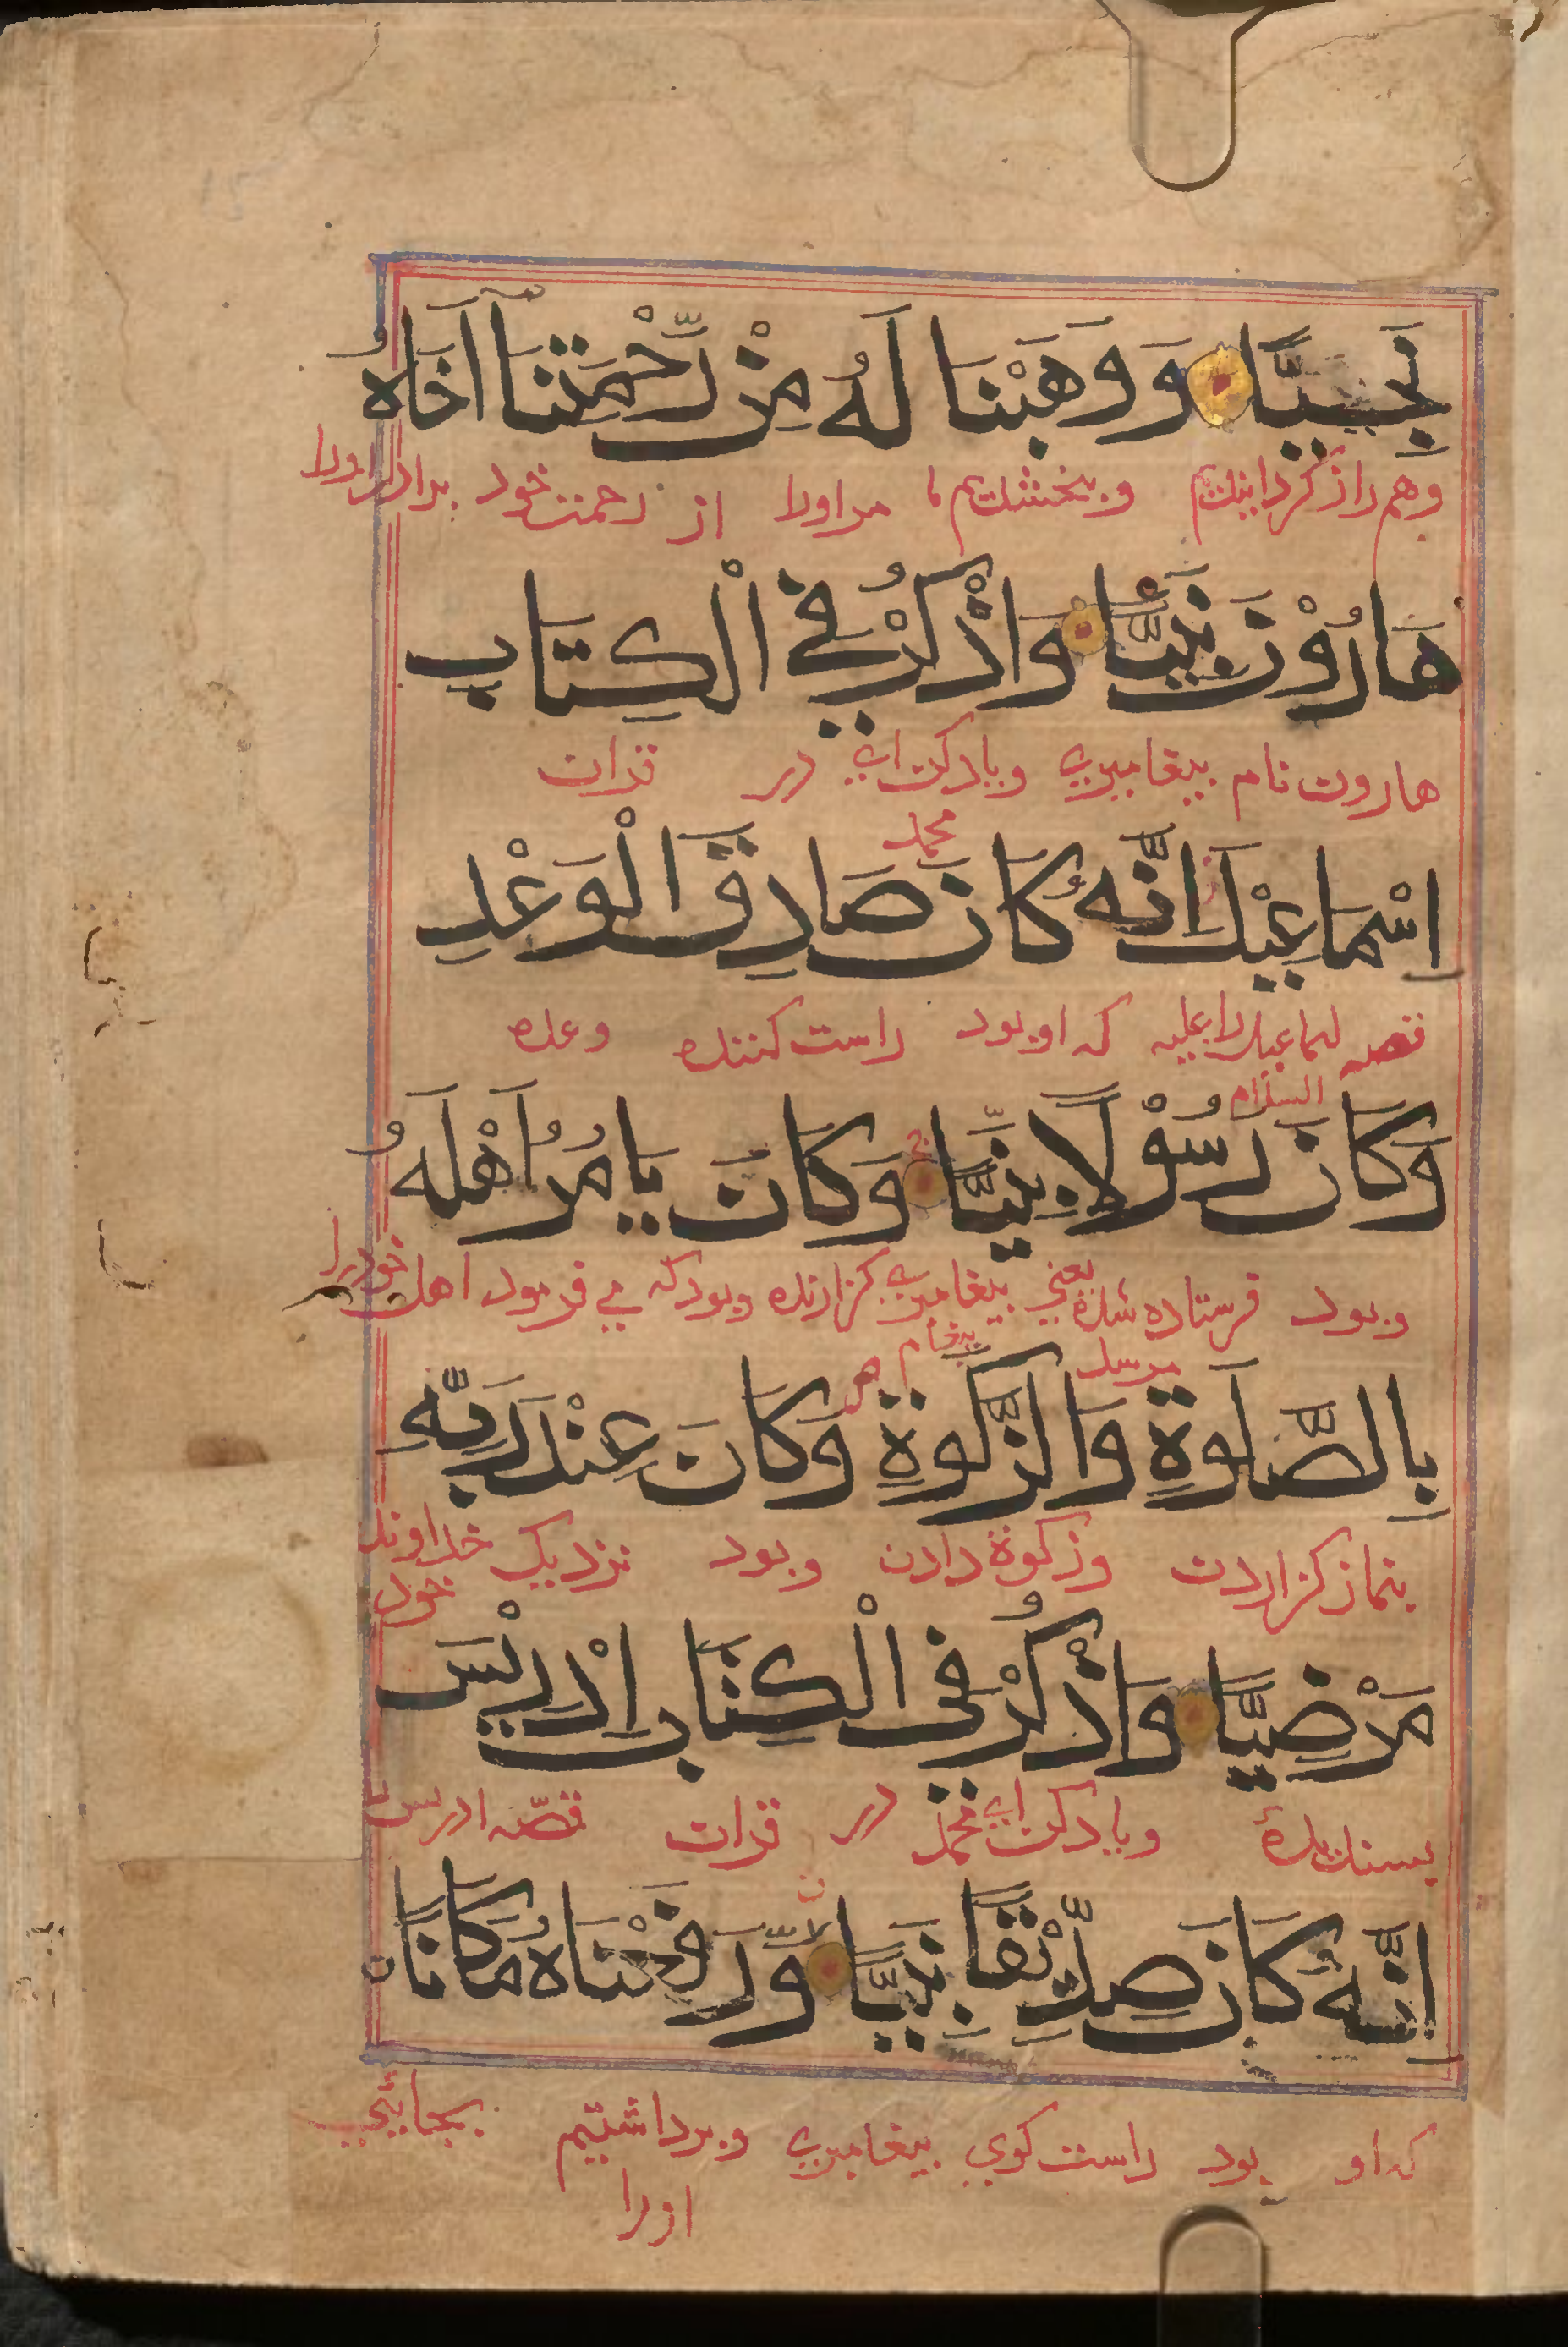 نَجِيًّا وَوَهَبْنَا لَهُ مِنْ رَّحْمَتِنَا أَخَاهُ
وهم راز کردانیدیم وبخشیدیم ما مر اورا از رحمت خود برادر اورا
هَارُوْنَ نَبِيًّا وَاذْكُرْ فِي الْكِتَابِ
هارون نام پیغامبری ویاد کن ای در قرآن
محمد
اِسْمَاعِيْلَ اِنَّهُ كَانَ صَادِقَ الْوَعْدِ
قصه اسماعیل را علیه که او بود راست کننده وعده
السلام
وَكَانَ رَسُوْلًا نَبِيًّا وَكَانَ يَامُرُ اَهْلَهُ
وبود فرستاده شده یعنی پیغامبری کزارنده وبود که می فرمود اهل خود را
مرسل پیغام
بِالصَّلٰوةِ وَالزَّكٰوةِ وَكَانَ عِنْدَ رَبِّهِ
بنماز کزاردن وزکوة دادن وبود نزدیک خداوند
خود
مَرْضِيًّا وَاذْكُرْ فِى الْكِتَابِ اِدْرِيْسَ
پسندیده ویاد کن ای محمد در قرآن قصّه ادریس را
اِنَّهُ كَانَ صِدِّيْقًا نَبِيًّا وَّرَفَعْنَاهُ مَكَانًا
که او بود راست کوی پیغامبری وبرداشتیم بجائی
اورا